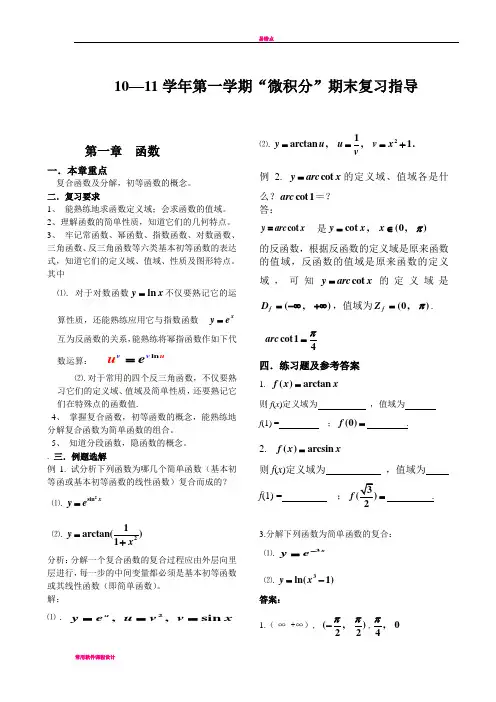 易特点
10—11学年第一学期“微积分”期末复习指导
第一章 函数
一．本章重点
复合函数及分解，初等函数的概念。
二．复习要求
1、 能熟练地求函数定义域；会求函数的值域。
2、理解函数的简单性质，知道它们的几何特点。
3、 牢记常函数、幂函数、指数函数、对数函数、
三角函数、反三角函数等六类基本初等函数的表达
式，知道它们的定义域、值域、性质及图形特点。
其中
⑴. 对于对数函数 y = ln x 不仅要熟记它的运
算性质，还能熟练应用它与指数函数 y = e^x
互为反函数的关系,能熟练将幂指函数作如下代
数运算： u^v = e^{v ln u}
⑵.对于常用的四个反三角函数，不仅要熟
习它们的定义域、值域及简单性质，还要熟记它
们在特殊点的函数值.
4、 掌握复合函数，初等函数的概念，能熟练地
分解复合函数为简单函数的组合。
5、 知道分段函数，隐函数的概念。
. 三．例题选解
例1. 试分析下列函数为哪几个简单函数（基本初
等函或基本初等函数的线性函数）复合而成的？
⑴. y = e^{sin^2 x}
⑵. y = arctan(1/(1+x^2))
分析：分解一个复合函数的复合过程应由外层向里
层进行，每一步的中间变量都必须是基本初等函数
或其线性函数（即简单函数）。
解：
⑴ . y = e^u, u = v^2, v = sin x
⑵. y = arctan u, u = 1/v, v = x^2 + 1.
例 2. y = arc cot x 的定义域、值域各是什
么？arc cot 1 =？
答：
y = arc cot x 是 y = cot x, x ∈ (0, π)
的反函数，根据反函数的定义域是原来函数
的值域，反函数的值域是原来函数的定义
域，可知 y = arc cot x 的定义域是
D_f = (−∞, +∞)，值域为 Z_f = (0, π).
arc cot 1 = π/4
四．练习题及参考答案
1. f(x) = arctan x
则f(x)定义域为 ，值域为
f(1) = ；f(0) = .
2. f(x) = arcsin x
则f(x)定义域为 ，值域为
f(1) = ；f(√3/2) = .
3.分解下列函数为简单函数的复合：
⑴. y = e^{−3x}
⑵. y = ln(x^3 − 1)
答案：
1.（-∞ +∞）, (−π/2, π/2) , π/4, 0
常用软件课程设计